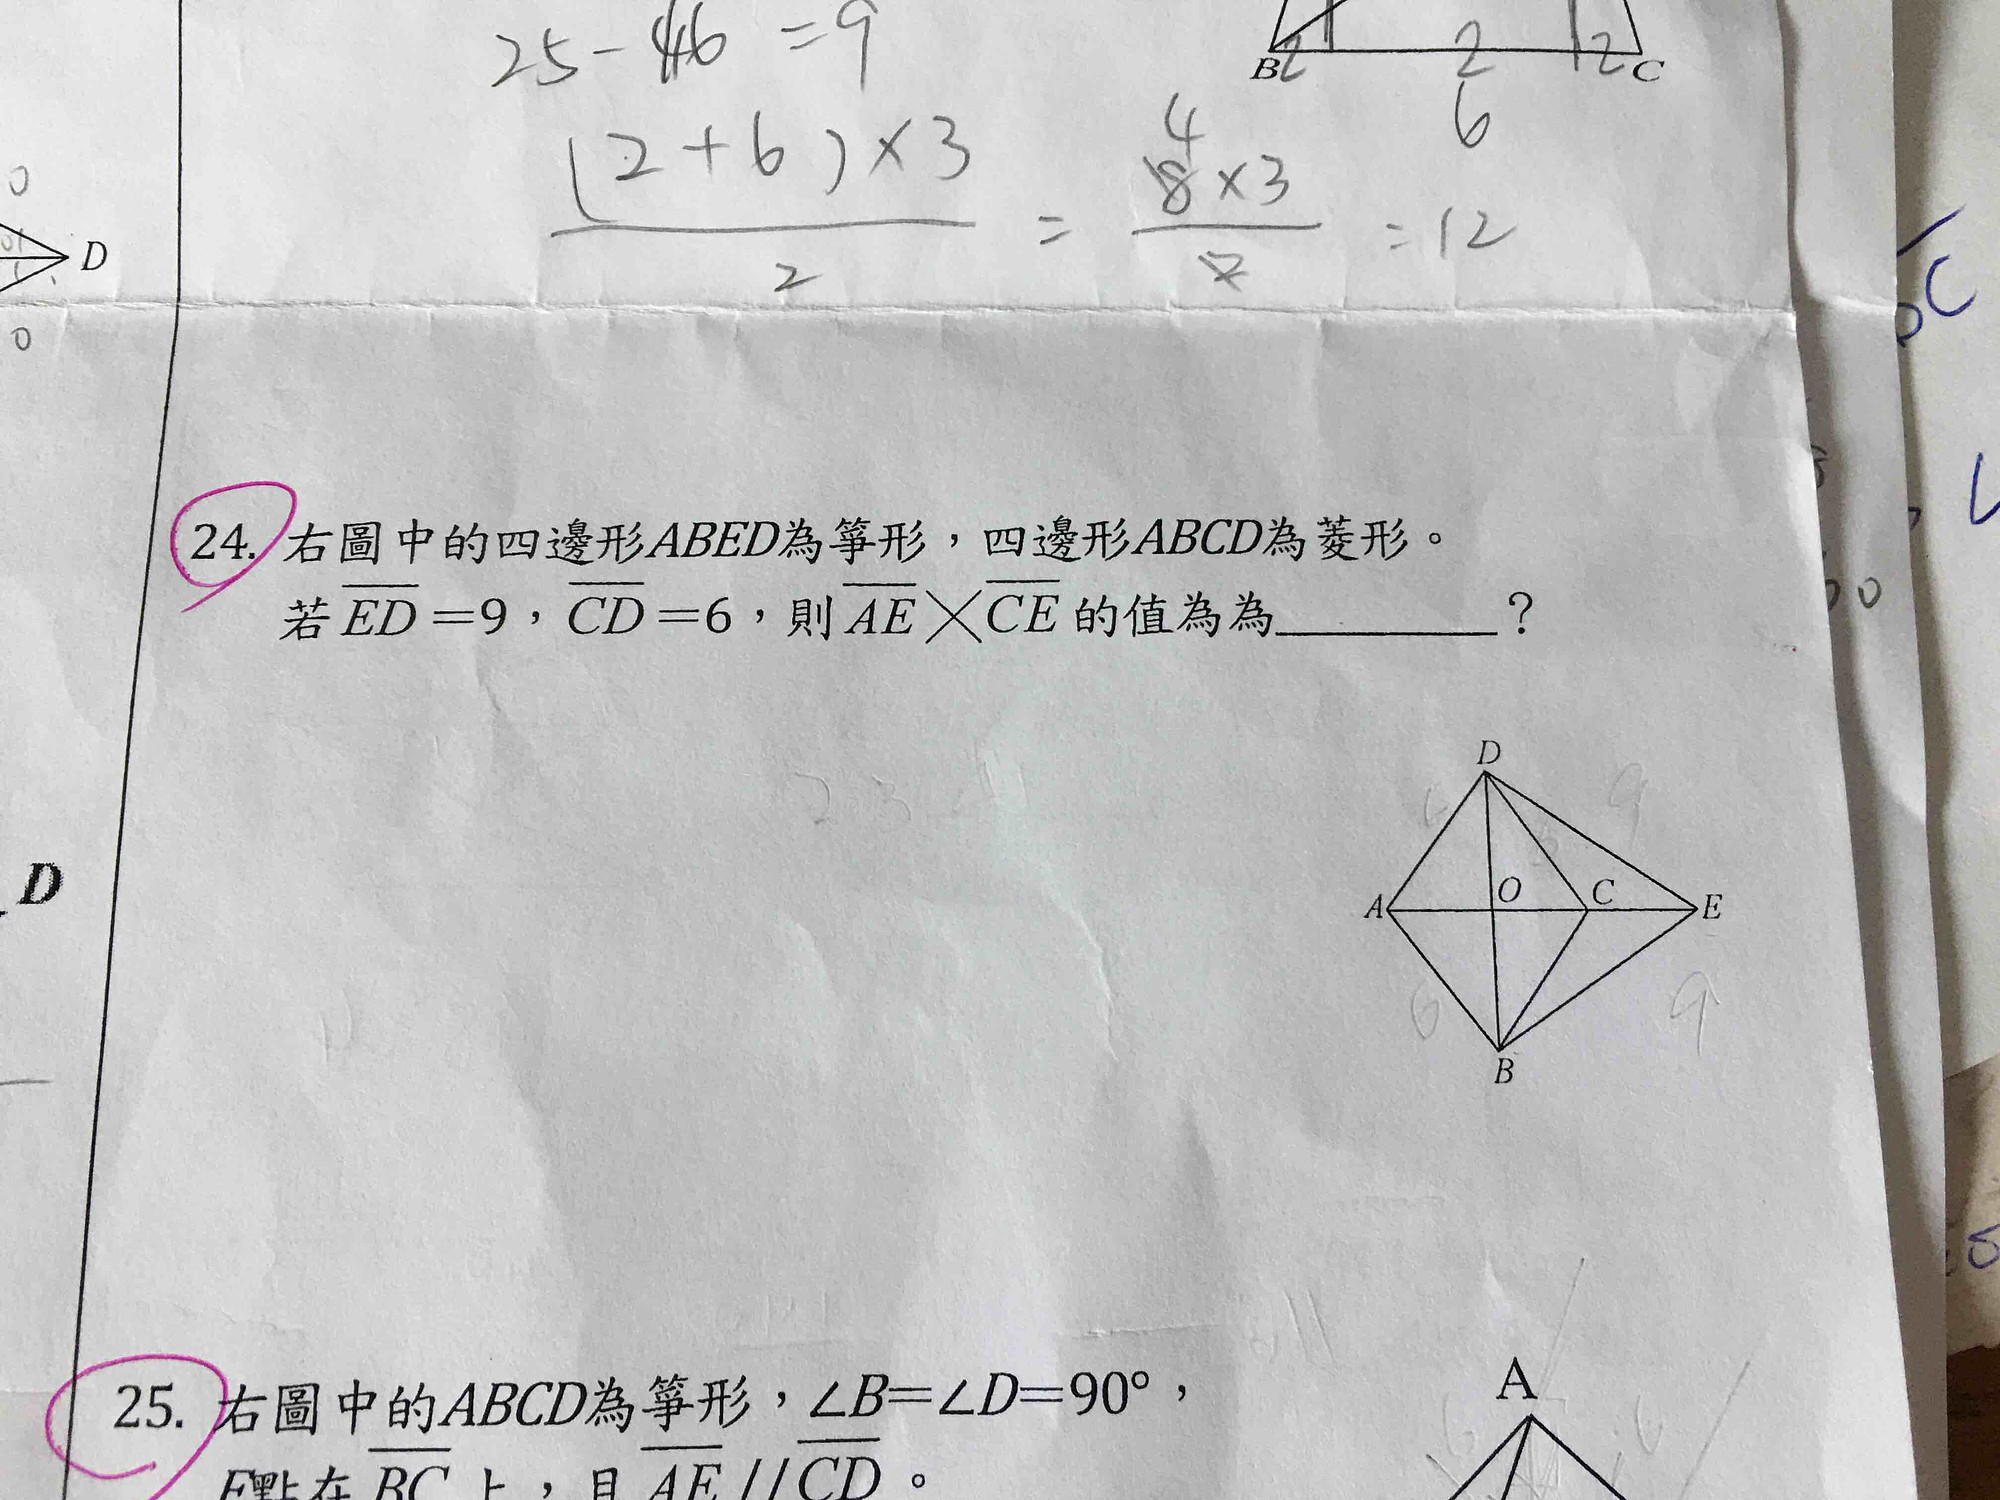 25-16=9
B 2 2 2 C
6
(2+6)×3 / 2 = 8×3 / 2 = 12
4
0
D
0
24. 右圖中的四邊形ABED為箏形，四邊形ABCD為菱形。
若ED=9，CD=6，則AE×CE的值為為________？
D
9
A O C E
6 9
B
D
25. 右圖中的ABCD為箏形，∠B=∠D=90°，
A
E點在BC上，且AE//CD。